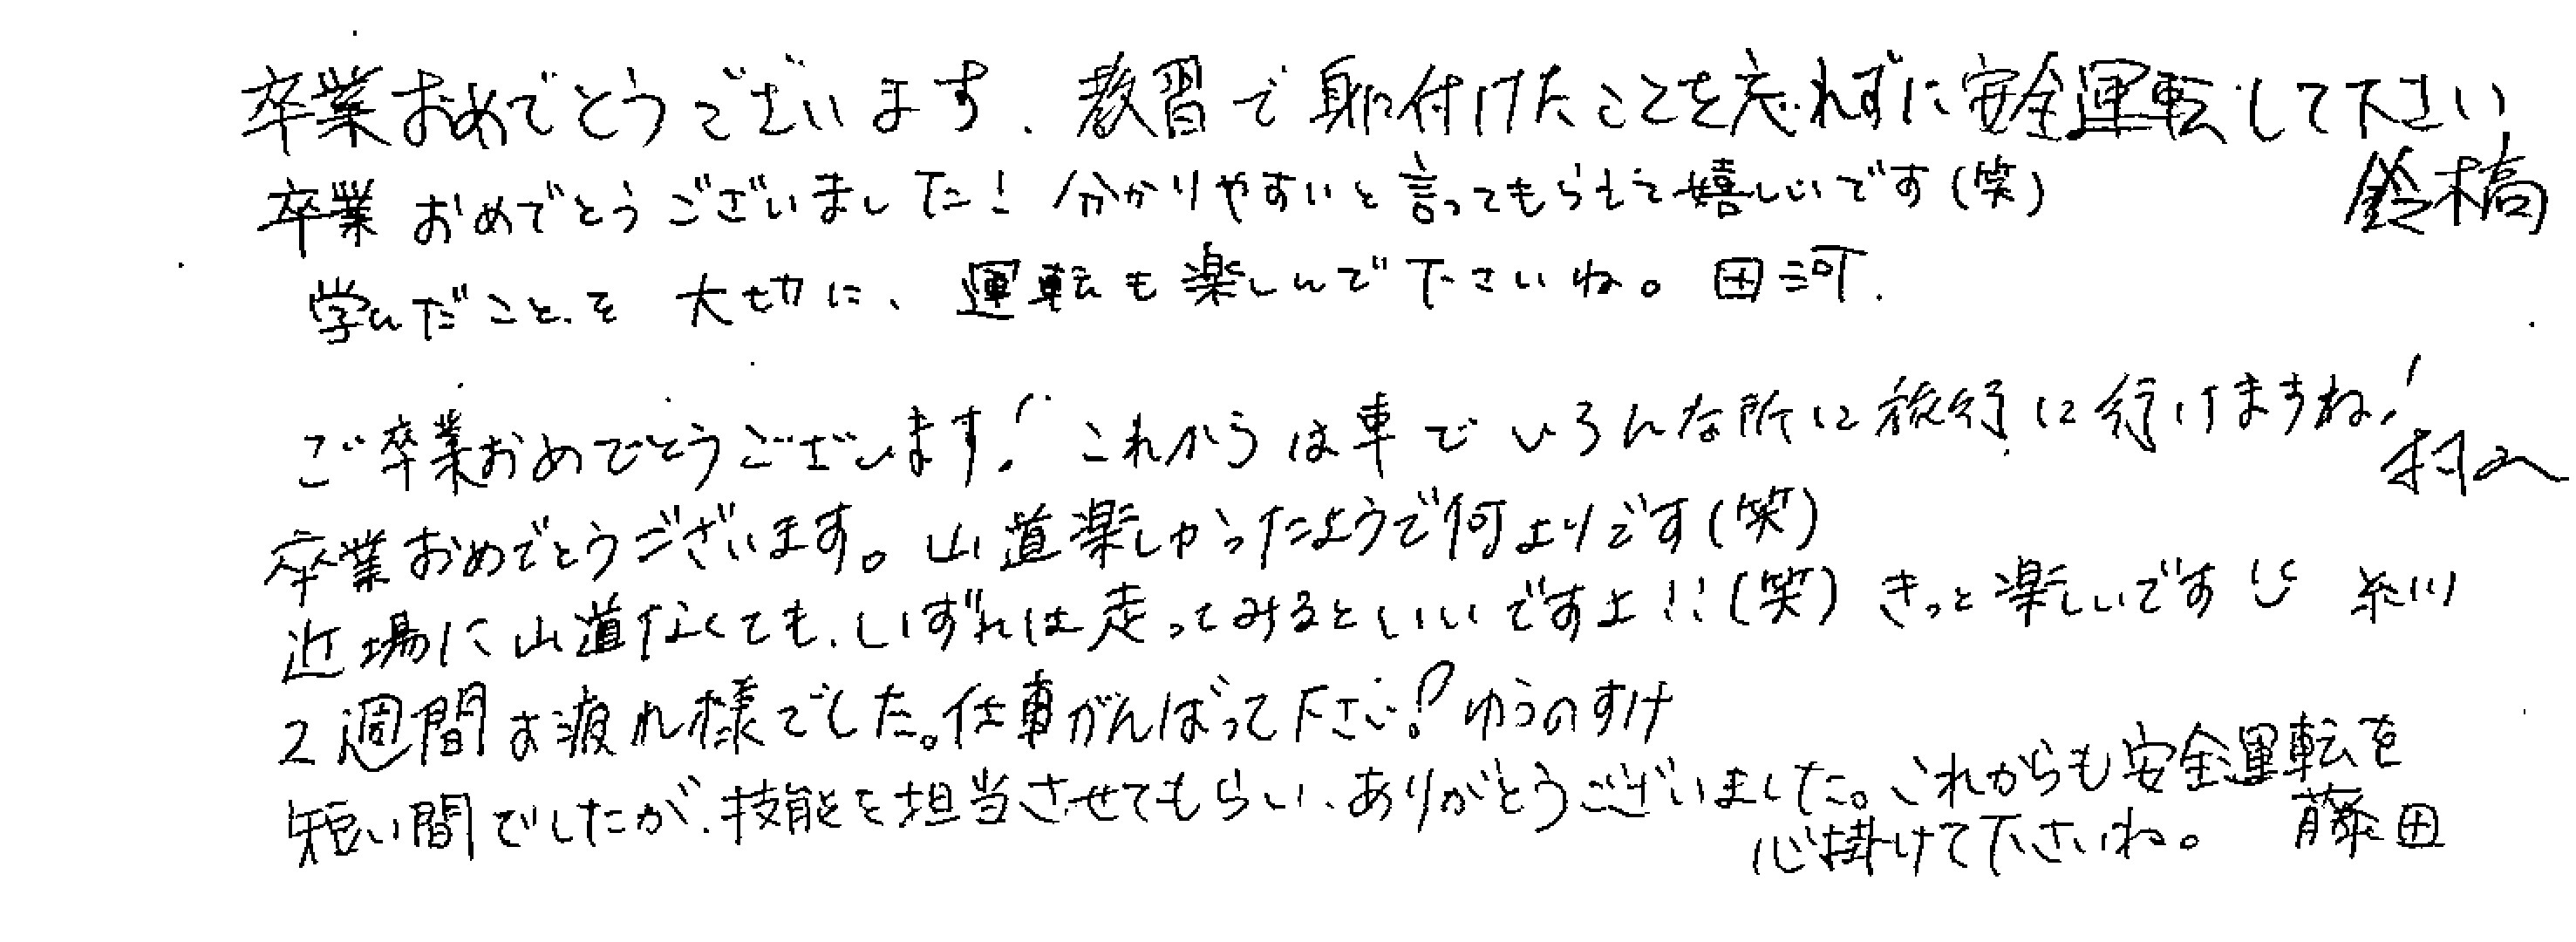 卒業おめでとうございます。教習で身に付けたことを忘れずに安全運転して下さい
鈴木高
卒業おめでとうございました！分かりやすいと言ってもらえて嬉しいです(笑)
学んだことを大切に、運転も楽しんで下さいね。田河
ご卒業おめでとうございます！これからは車でいろんな所に旅行に行けますね！
村上
卒業おめでとうございます。山道楽しかったようで何よりです(笑)
近場に山道なくても、いずれは走ってみるといいですよ!!(笑)きっと楽しいです
2週間お疲れ様でした。仕事がんばって下さい！ゆうのすけ
短い間でしたが、技能を担当させてもらい、ありがとうございました。これからも安全運転を
心掛けて下さいね。藤田